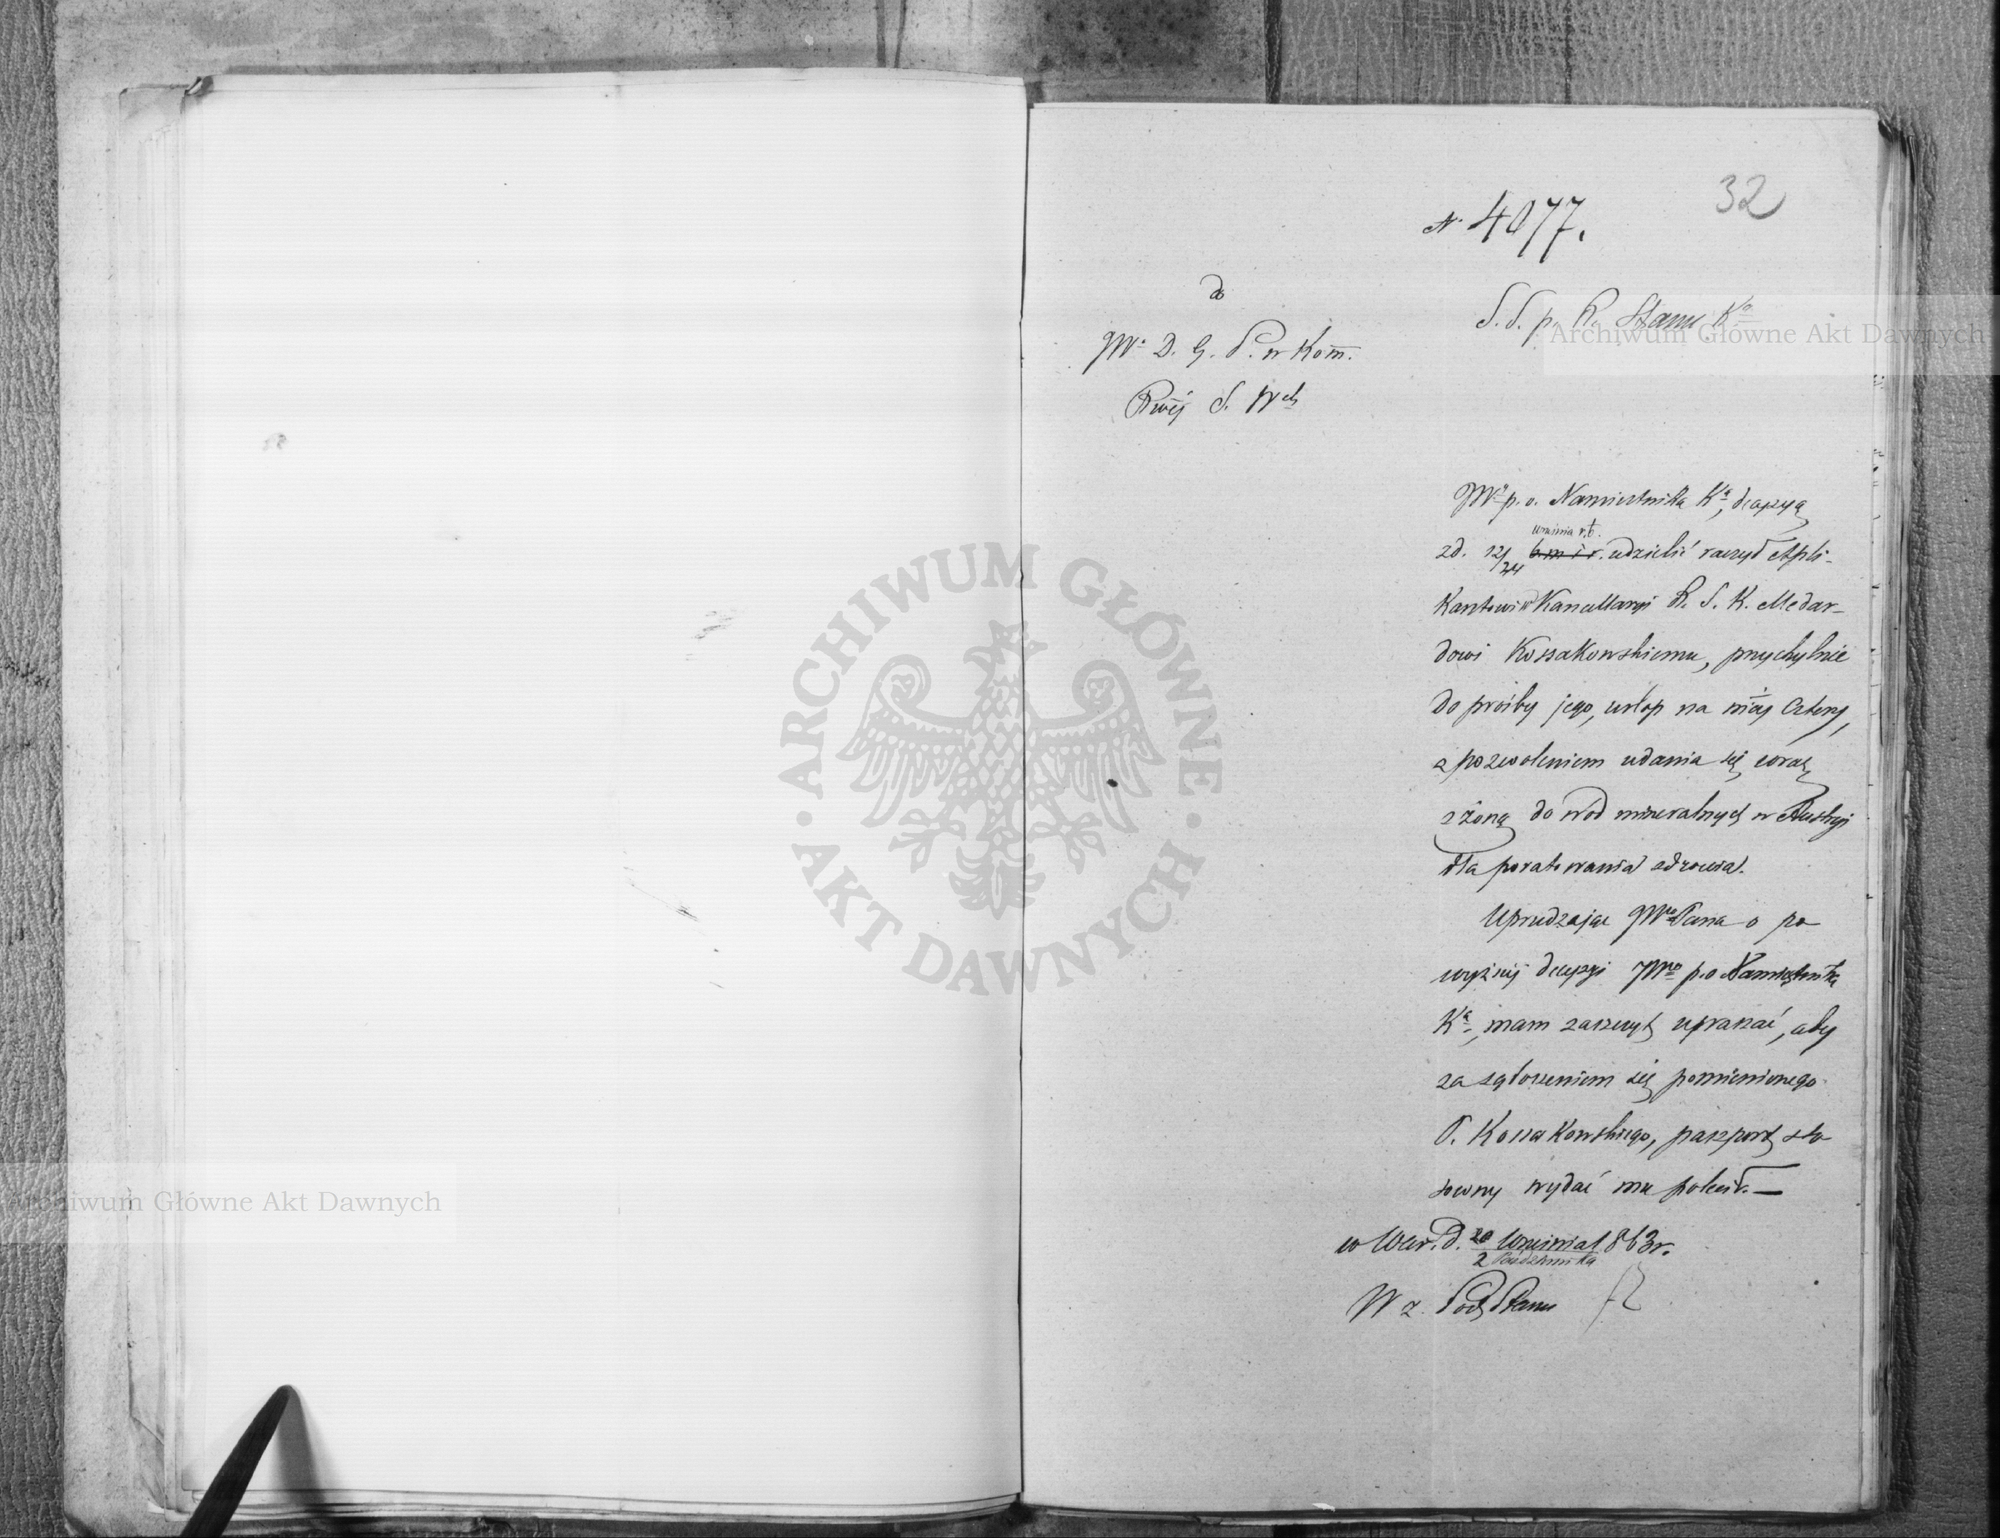 32
N. 4077.
do
JW. D. G. S. w Kom.
Rwéj S. Wch
S. S. p. R. Stanu Ka
JWy p. o. Namiestnika Ka, decyzyą
z d. 12/24 września r. b. b. m. i r. udzielić raczył Apli-
kantowi w Kancellaryi R. S. K. Medar-
dowi Kossakowskiemu, przychylnie
do prośby jego, urlop na mięs. cztery,
z pozwoleniem udania się wraz
z żoną do wód mineralnych w Austryi
dla poratowania zdrowia.
Uprzedzając JWgo Pana o po
wyższej decyzyi JWgo p. o Namiestnika
Ka, mam zaszczyt upraszać, aby
za zgłoszeniem się pomienionego
P. Kossakowskiego, paszport sto
sowny wydać mu polecił. —
w War. d. 20 Września / 2 Października 1863 r.
W z. Pod. Stanu
Archiwum Główne Akt Dawnych
Archiwum Główne Akt Dawnych
ARCHIWUM GŁÓWNE · AKT DAWNYCH ·